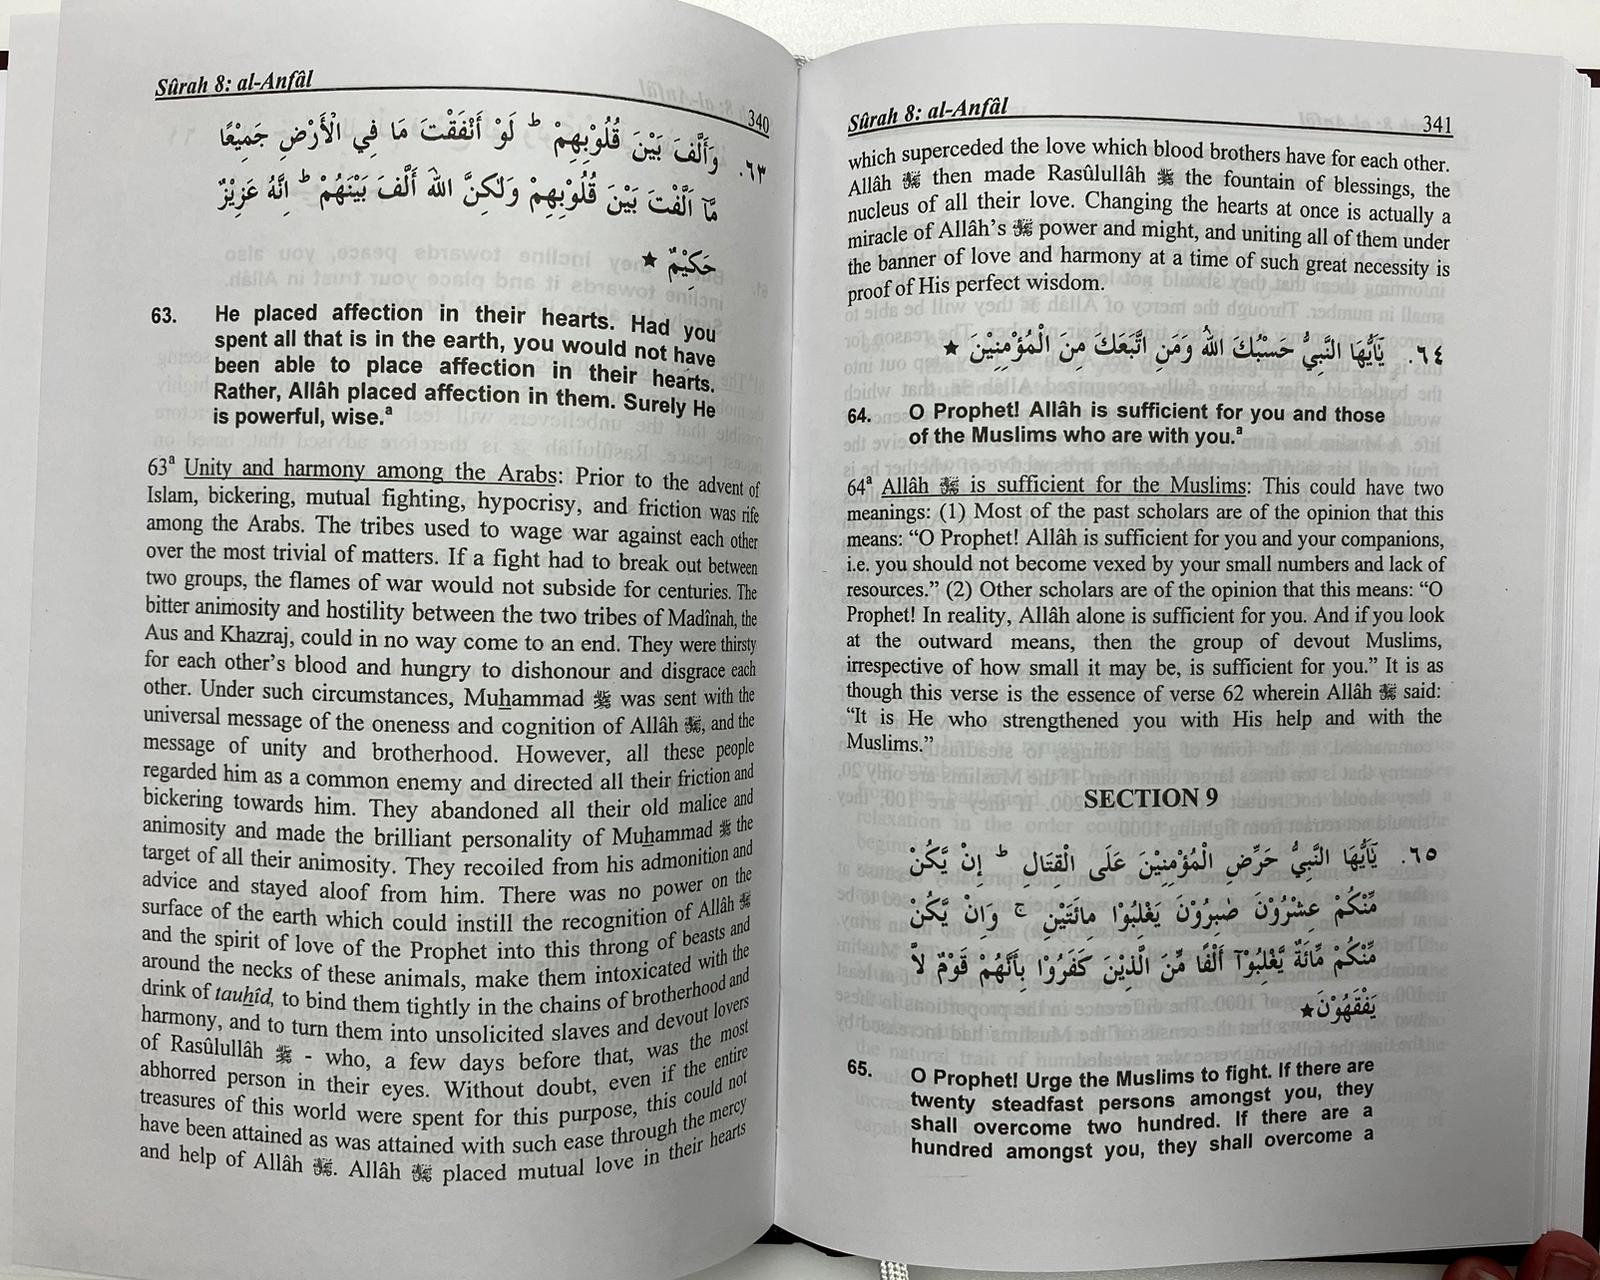 Sûrah 8: al-Anfâl
340
٦٣. وَأَلَّفَ بَيْنَ قُلُوْبِهِمْ ؕ لَوْ أَنْفَقْتَ مَا فِي الْأَرْضِ جَمِيْعًا
مَّآ اَلَّفْتَ بَيْنَ قُلُوْبِهِمْ وَلٰكِنَّ اللهَ أَلَّفَ بَيْنَهُمْ ؕ اِنَّهُ عَزِيْزٌ
حَكِيْمٌ ★
63. He placed affection in their hearts. Had you
spent all that is in the earth, you would not have
been able to place affection in their hearts.
Rather, Allâh placed affection in them. Surely He
is powerful, wise.ª
63ª Unity and harmony among the Arabs: Prior to the advent of
Islam, bickering, mutual fighting, hypocrisy, and friction was rife
among the Arabs. The tribes used to wage war against each other
over the most trivial of matters. If a fight had to break out between
two groups, the flames of war would not subside for centuries. The
bitter animosity and hostility between the two tribes of Madînah, the
Aus and Khazraj, could in no way come to an end. They were thirsty
for each other's blood and hungry to dishonour and disgrace each
other. Under such circumstances, Muhammad ﷺ was sent with the
universal message of the oneness and cognition of Allâh ﷻ, and the
message of unity and brotherhood. However, all these people
regarded him as a common enemy and directed all their friction and
bickering towards him. They abandoned all their old malice and
animosity and made the brilliant personality of Muhammad ﷺ the
target of all their animosity. They recoiled from his admonition and
advice and stayed aloof from him. There was no power on the
surface of the earth which could instill the recognition of Allâh ﷻ
and the spirit of love of the Prophet into this throng of beasts and
around the necks of these animals, make them intoxicated with the
drink of tauhîd, to bind them tightly in the chains of brotherhood and
harmony, and to turn them into unsolicited slaves and devout lovers
of Rasûlullâh ﷺ - who, a few days before that, was the most
abhorred person in their eyes. Without doubt, even if the entire
treasures of this world were spent for this purpose, this could not
have been attained as was attained with such ease through the mercy
and help of Allâh ﷻ. Allâh ﷻ placed mutual love in their hearts
Sûrah 8: al-Anfâl
341
which superceded the love which blood brothers have for each other.
Allâh ﷻ then made Rasûlullâh ﷺ the fountain of blessings, the
nucleus of all their love. Changing the hearts at once is actually a
miracle of Allâh's ﷻ power and might, and uniting all of them under
the banner of love and harmony at a time of such great necessity is
proof of His perfect wisdom.
٦٤. يٰٓاَيُّهَا النَّبِيُّ حَسْبُكَ اللهُ وَمَنِ اتَّبَعَكَ مِنَ الْمُؤْمِنِيْنَ ★
64. O Prophet! Allâh is sufficient for you and those
of the Muslims who are with you.ª
64ª Allâh ﷻ is sufficient for the Muslims: This could have two
meanings: (1) Most of the past scholars are of the opinion that this
means: "O Prophet! Allâh is sufficient for you and your companions,
i.e. you should not become vexed by your small numbers and lack of
resources." (2) Other scholars are of the opinion that this means: "O
Prophet! In reality, Allâh alone is sufficient for you. And if you look
at the outward means, then the group of devout Muslims,
irrespective of how small it may be, is sufficient for you." It is as
though this verse is the essence of verse 62 wherein Allâh ﷻ said:
"It is He who strengthened you with His help and with the
Muslims."
SECTION 9
٦٥. يٰٓاَيُّهَا النَّبِيُّ حَرِّضِ الْمُؤْمِنِيْنَ عَلَى الْقِتَالِ ؕ إِنْ يَّكُنْ
مِّنْكُمْ عِشْرُوْنَ صٰبِرُوْنَ يَغْلِبُوْا مِائَتَيْنِ ۚ وَاِنْ يَّكُنْ
مِّنْكُمْ مِّائَةٌ يَّغْلِبُوْآ أَلْفًا مِّنَ الَّذِيْنَ كَفَرُوْا بِأَنَّهُمْ قَوْمٌ لاَّ
يَفْقَهُوْنَ★
65. O Prophet! Urge the Muslims to fight. If there are
twenty steadfast persons amongst you, they
shall overcome two hundred. If there are a
hundred amongst you, they shall overcome a